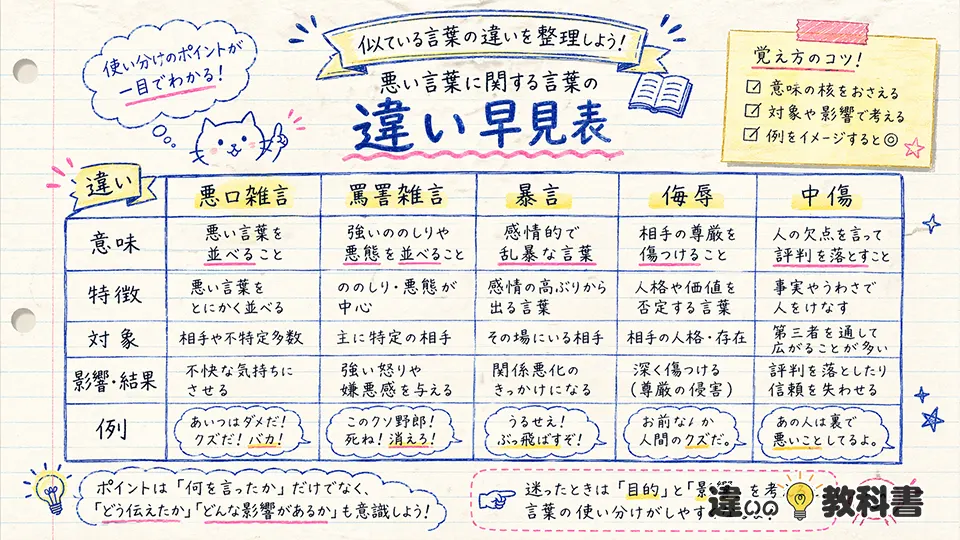 使い分けのポイントが
一目でわかる！
似ている言葉の違いを整理しよう！
悪い言葉に関する言葉の
違い早見表
覚え方のコツ！
意味の核をおさえる
対象や影響で考える
例をイメージすると◎
違い
悪口雑言
罵詈雑言
暴言
侮辱
中傷
意味
悪い言葉を
並べること
強いののしりや
悪態を並べること
感情的で
乱暴な言葉
相手の尊厳を
傷つけること
人の欠点を言って
評判を落とすこと
特徴
悪い言葉を
とにかく並べる
ののしり・悪態が
中心
感情の高ぶりから
出る言葉
人格や価値を
否定する言葉
事実やうわさで
人をけなす
対象
相手や不特定多数
主に特定の相手
その場にいる相手
相手の人格・存在
第三者を通して
広がることが多い
影響・結果
不快な気持ちに
させる
強い怒りや
嫌悪感を与える
関係悪化の
きっかけになる
深く傷つける
（尊厳の侵害）
評判を落としたり
信頼を失わせる
例
あいつはダメだ！
クズだ！バカ！
このクソ野郎！
死ね！消えろ！
うるせえ！
ぶっ飛ばすぞ！
お前なんか
人間のクズだ。
あの人は裏で
悪いことしてるよ。
ポイントは「何を言ったか」だけでなく、
「どう伝えたか」「どんな影響があるか」も意識しよう！
迷ったときは「目的」と「影響」を考
言葉の使い分けがしやす
違いの教科書